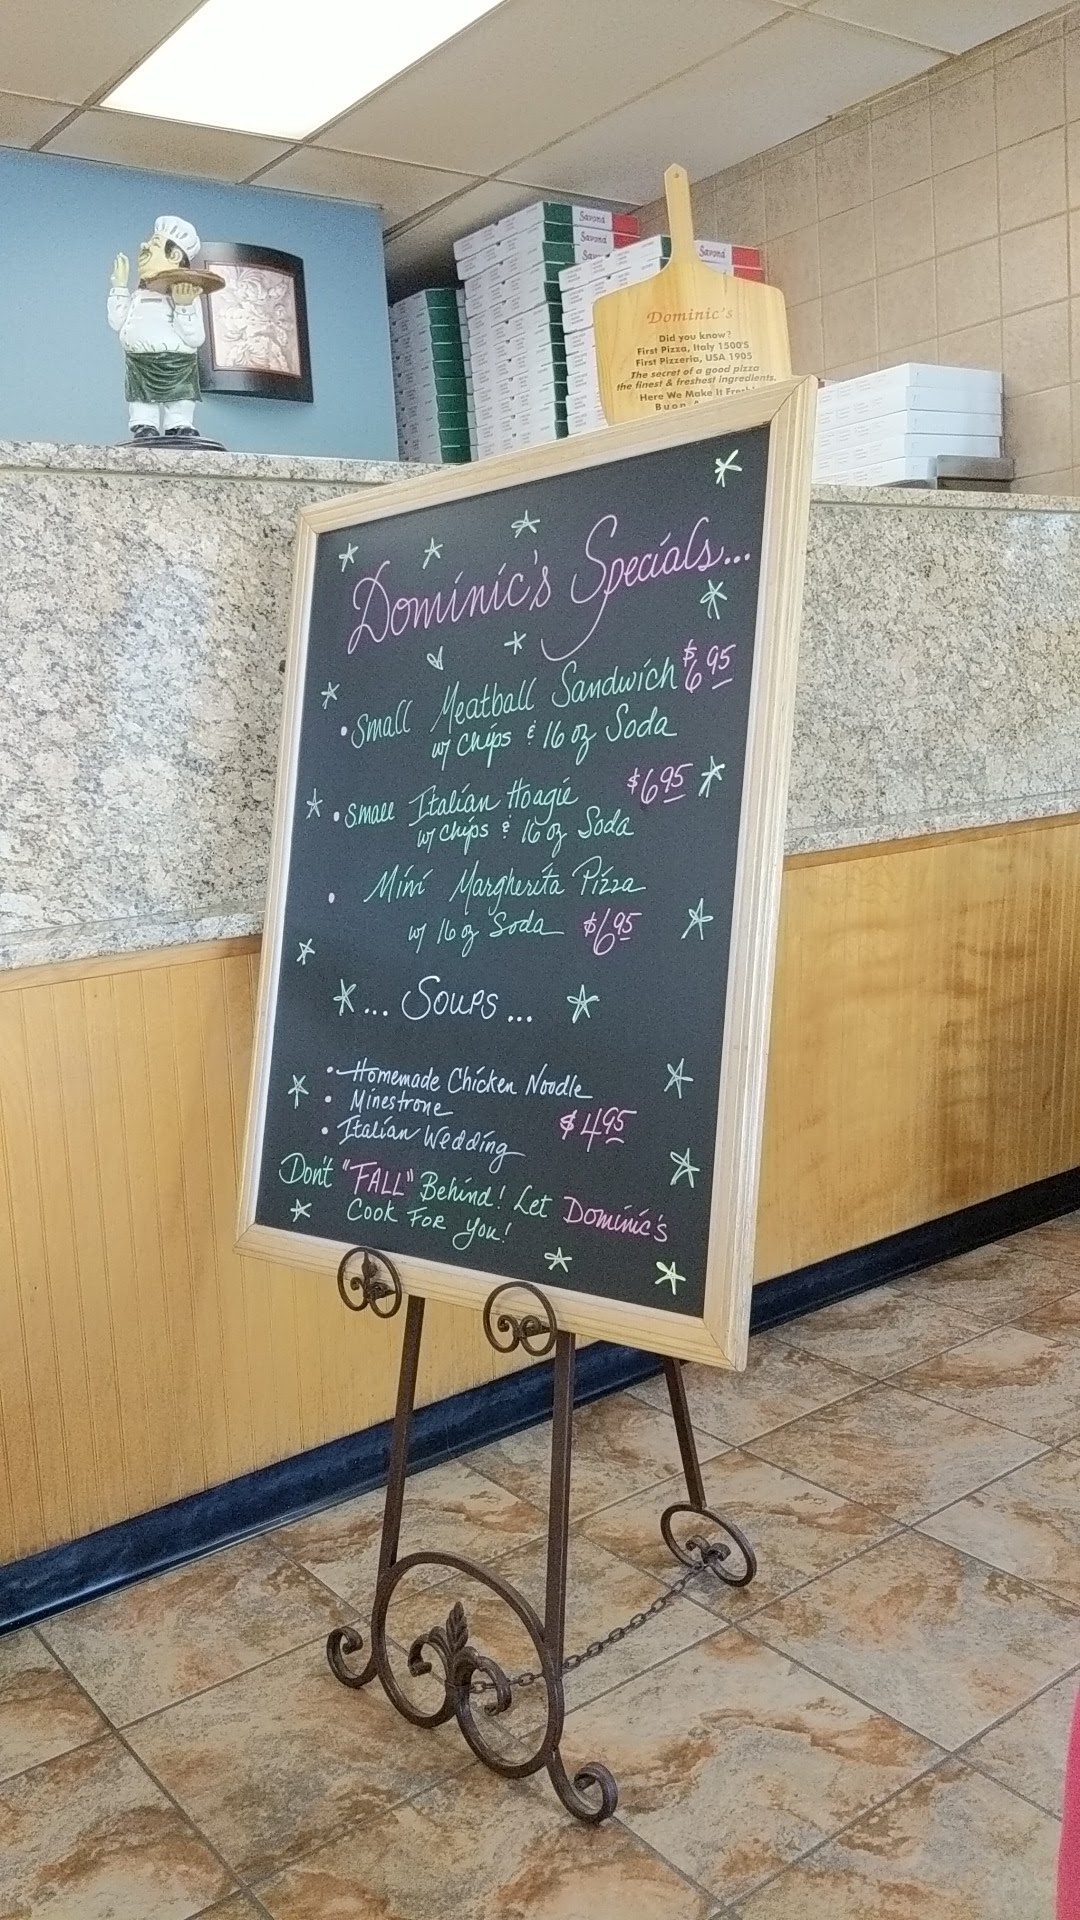 Savona
Savona
Savona
Savona
Dominic's
Did you know?
First Pizza, Italy 1500'S
First Pizzeria, USA 1905
The secret of a good pizza
the finest & freshest ingredients.
Here We Make It Fresh
Dominic's Specials...
• Small Meatball Sandwich $6.95
w/ chips & 16 oz Soda
• Small Italian Hoagie $6.95
w/ chips & 16 oz Soda
• Mini Margherita Pizza
w/ 16 oz Soda $6.95
... Soups ...
• Homemade Chicken Noodle
• Minestrone $4.95
• Italian Wedding
Don't "FALL" Behind! Let Dominic's
Cook For You!